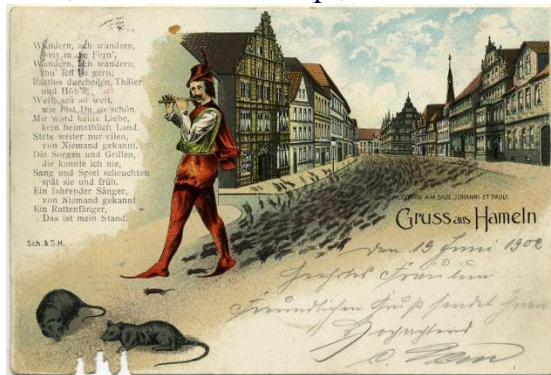 Wandern, ach wandern,
weit in die Fern',
Wandern, ach wandern,
thu' ich so gern,
Rastlos durcheilen Thäler
und Höh'n,
Welt, ach so weit,
wie bist Du so schön.
Mir ward keine Liebe,
kein heimathlich Land,
Stets weiter nur eilen,
von Niemand gekannt.
Die Sorgen und Grillen,
die kannte ich nie,
Sang und Spiel scheuchten
spät sie und früh.
Ein fahrender Sänger,
von Niemand gekannt
Ein Rattenfänger,
Das ist mein Stand.
Sch. & S.H.
AM DAGE JOHANNI ET PAULI.
Gruss aus Hameln
den 19 Juni 1902
Geehrtes Fräulein
Freundlichen Gruß sendet Ihnen
Hochachtend